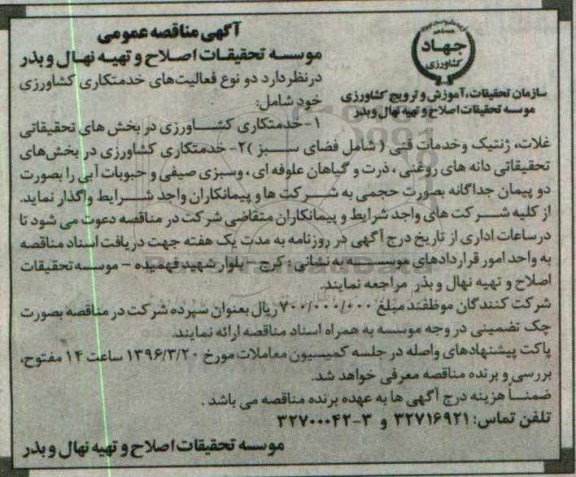 آگهی مناقصه عمومی
موسسه تحقیقات اصلاح و تهیه نهال و بذر
جهاد
کشاورزی
سازمان تحقیقات، آموزش و ترویج کشاورزی
موسه تحقیقات اصلاح و تهیه نهال و بذر
درنظر دارد دو نوع فعالیت‌های خدمتکاری کشاورزی
خود شامل:
۱- خدمتکاری کشاورزی در بخش های تحقیقاتی
غلات، ژنتیک وخدمات فنی ( شامل فضای سبز )۲- خدمتکاری کشاورزی در بخش‌های
تحقیقاتی دانه های روغنی ، ذرت و گیاهان علوفه ای ، وسبزی صیفی و حبوبات آبی را بصورت
دو پیمان جداگانه بصورت حجمی به شرکت ها و پیمانکاران واجد شرایط واگذار نماید.
از کلیه شرکت های واجد شرایط و پیمانکاران متقاضی شرکت در مناقصه دعوت می شود تا
درساعات اداری از تاریخ درج آگهی در روزنامه به مدت یک هفته جهت دریافت اسناد مناقصه
به واحد امور قراردادهای موسسه به نشانی : کرج - بلوار شهید فهمیده - موسسه تحقیقات
اصلاح و تهیه نهال و بذر مراجعه نمایند.
شرکت کنندگان موظفند مبلغ ۷۰۰/۰۰۰/۰۰۰ ریال بعنوان سپرده شرکت در مناقصه بصورت
چک تضمینی در وجه موسسه به همراه اسناد مناقصه ارائه نمایند.
پاکت پیشنهادهای واصله در جلسه کمیسیون معاملات مورخ ۱۳۹۶/۳/۲۰ ساعت ۱۴ مفتوح،
بررسی و برنده مناقصه معرفی خواهد شد.
ضمناً هزینه درج آگهی ها به عهده برنده مناقصه می باشد .
تلفن تماس: ۳۲۷۱۶۹۲۱ و ۳-۳۲۷۰۰۰۴۲
موسسه تحقیقات اصلاح و تهیه نهال و بذر